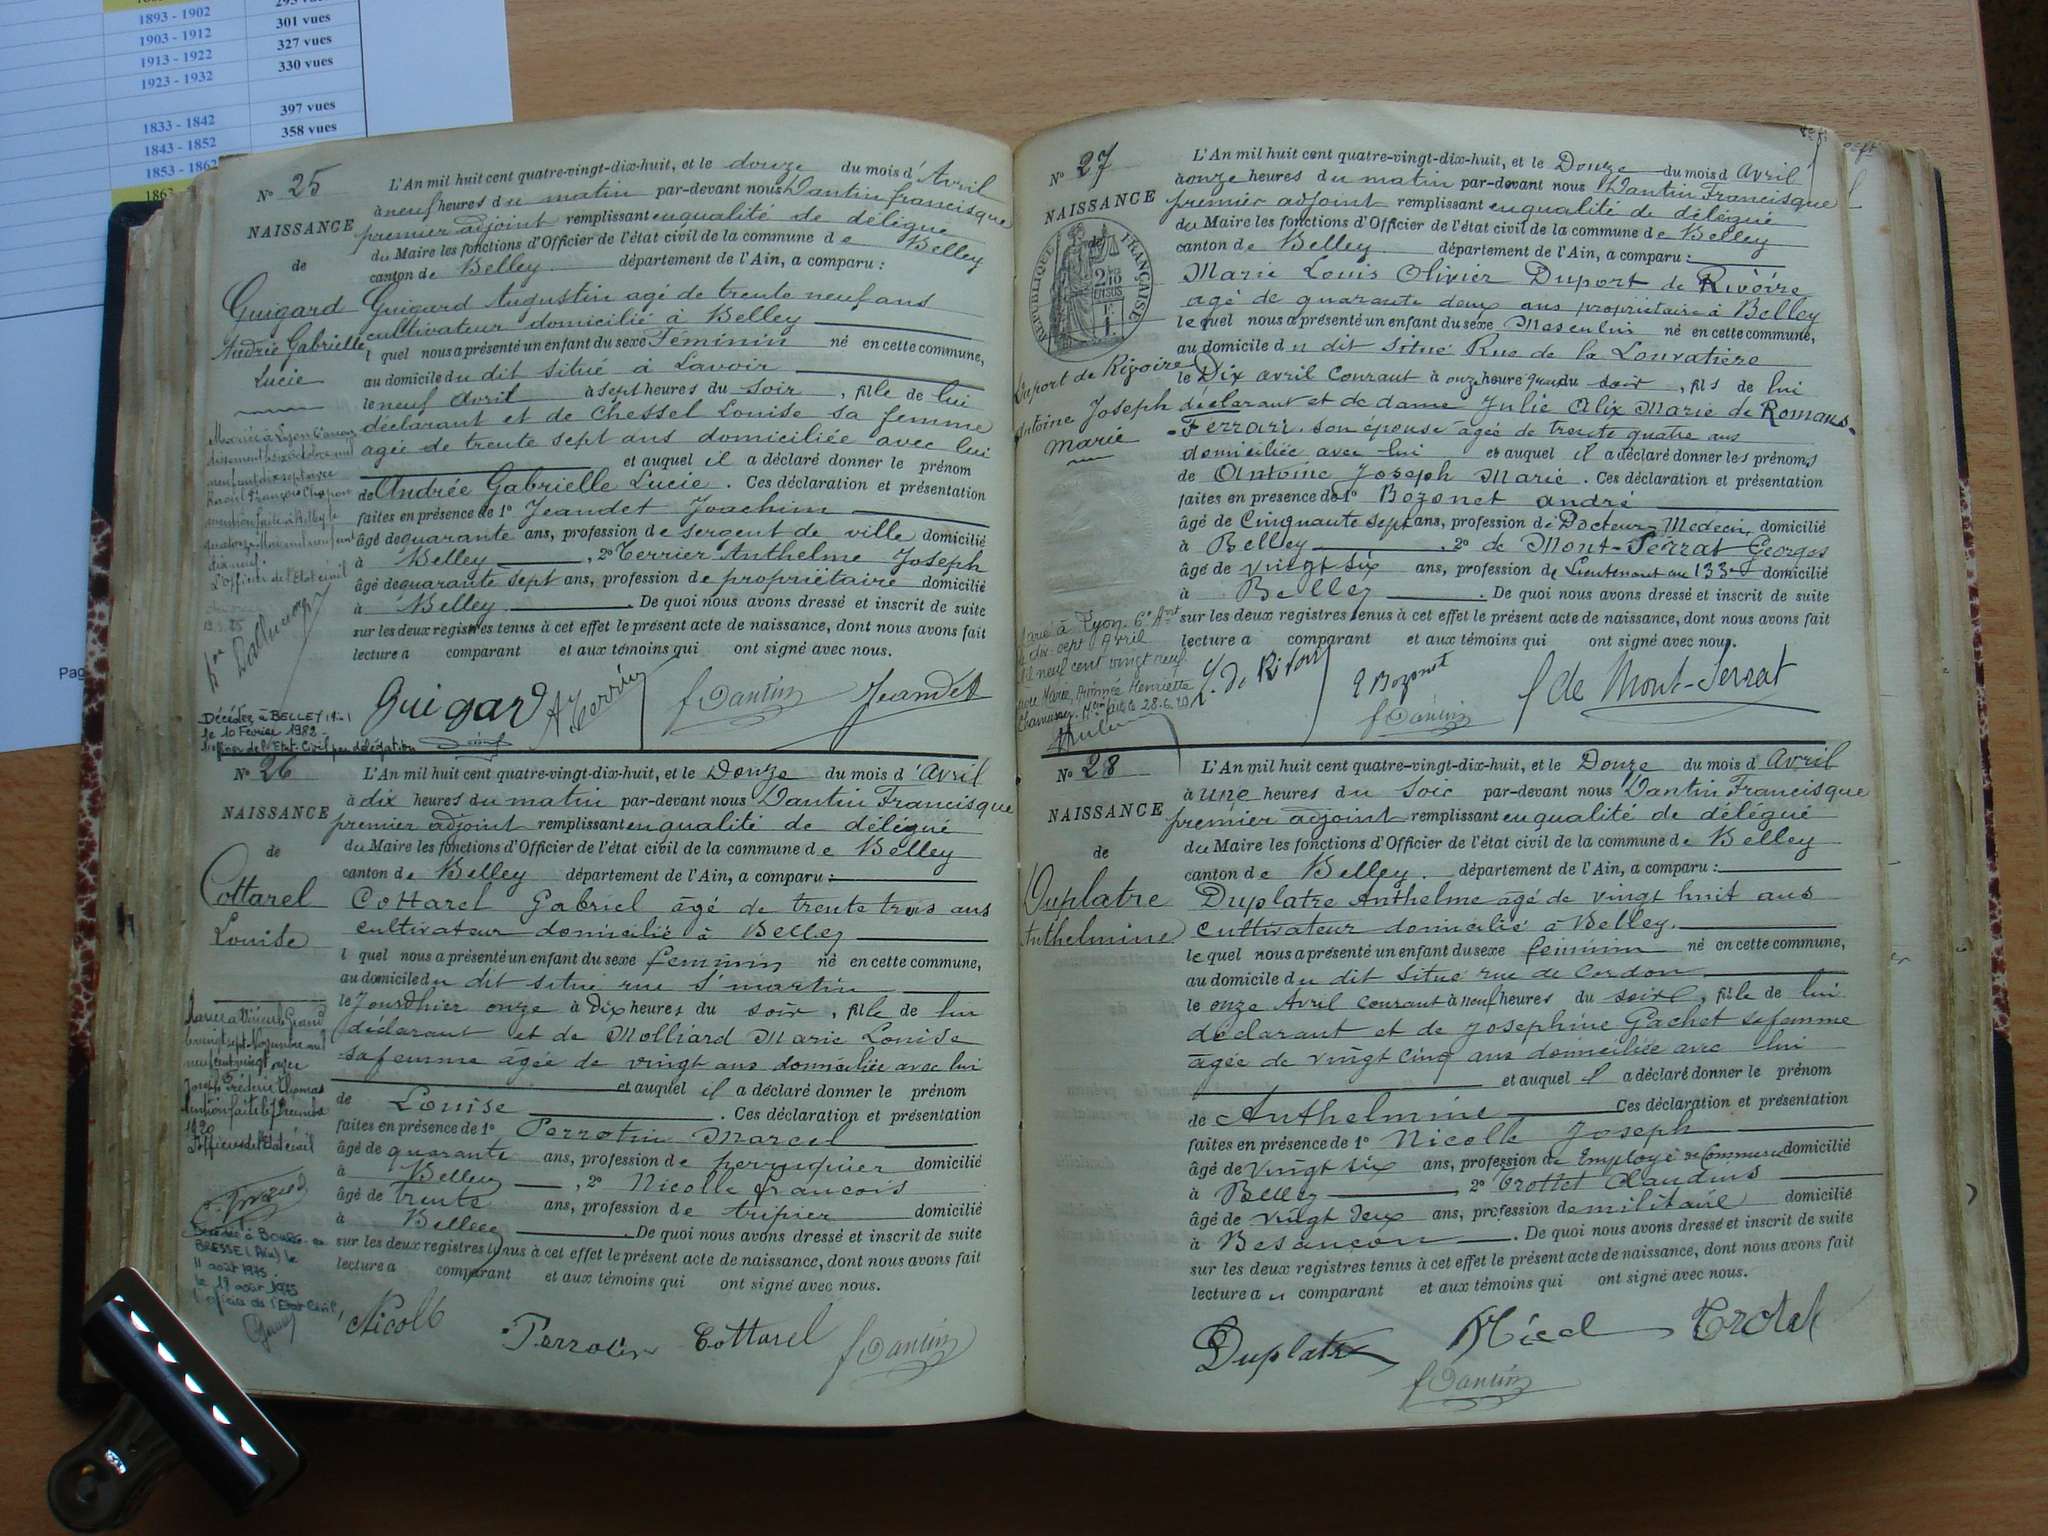 1893 - 1902
301 vues
1903 - 1912
327 vues
1913 - 1922
330 vues
1923 - 1932
397 vues
1833 - 1842
358 vues
1843 - 1852
1853 - 1862
Pag
N° 25
NAISSANCE
de
Guigard
Andrée Gabrielle
Lucie
L'An mil huit cent quatre-vingt-dix-huit, et le douze du mois d'Avril
à neuf heures du matin par-devant nous Dantin francisque
premier adjoint remplissant en qualité de délégué
du Maire les fonctions d'Officier de l'état civil de la commune de Belley
canton de Belley département de l'Ain, a comparu :
Guigard Augustin agé de trente neuf ans
cultivateur domicilié à Belley
l quel nous a présenté un enfant du sexe Féminin né en cette commune,
au domicile du dit situé à Lavoir
le neuf Avril à sept heures du soir, fille de lui
déclarant et de Chessel Louise sa femme
agée de trente sept ans domiciliée avec lui
et auquel il a déclaré donner le prénom
de Andrée Gabrielle Lucie. Ces déclaration et présentation
faites en présence de 1° Jeandet Joachim
âgé de quarante ans, profession de sergent de ville domicilié
à Belley, 2° Terrier Anthelme Joseph
âgé de quarante sept ans, profession de propriétaire domicilié
à Belley. De quoi nous avons dressé et inscrit de suite
sur les deux registres tenus à cet effet le présent acte de naissance, dont nous avons fait
lecture a comparant et aux témoins qui ont signé avec nous.
Guigard A Terrier f Dantin Jeandet
L'Officier de l'Etat civil
Décédée à BELLEY
le 10 Février 1982
l'officier de l'Etat-Civil par délégation
N° 26
NAISSANCE
de
Cottarel
Louise
L'An mil huit cent quatre-vingt-dix-huit, et le Douze du mois d'Avril
à dix heures du matin par-devant nous Dantin Francisque
premier adjoint remplissant en qualité de délégué
du Maire les fonctions d'Officier de l'état civil de la commune de Belley
canton de Belley département de l'Ain, a comparu :
Cottarel Gabriel âgé de trente trois ans
cultivateur domicilié à Belley
l quel nous a présenté un enfant du sexe feminin né en cette commune,
au domicile du dit situé rue St martin
le Jourdhier onze à Dix heures du soir, fille de lui
déclarant et de Molliard Marie Louise
sa femme agée de vingt ans domiciliée avec lui
et auquel il a déclaré donner le prénom
de Louise. Ces déclaration et présentation
faites en présence de 1° Perrotin Marcel
âgé de quarante ans, profession de perruquier domicilié
à Belley, 2° Nicolle francois
âgé de trente ans, profession de tripier domicilié
à Belley. De quoi nous avons dressé et inscrit de suite
sur les deux registres tenus à cet effet le présent acte de naissance, dont nous avons fait
lecture a comparant et aux témoins qui ont signé avec nous.
Nicolle Perrotin Cottarel f Dantin
Joseph Frédéric Thomas
1920
l'officier de l'Etat civil
Décédée à BOURG-en
BRESSE (Ain) le
11 août 1975
le 19 août 1975
l'officier de l'Etat Civil
N° 27
NAISSANCE
de
RÉPUBLIQUE FRANÇAISE
2/10
EN SUS
1 F.
Duport de Rivoire
Antoine Joseph
Marie
L'An mil huit cent quatre-vingt-dix-huit, et le Douze du mois d'Avril
à onze heures du matin par-devant nous Dantin Francisque
premier adjoint remplissant en qualité de délégué
du Maire les fonctions d'Officier de l'état civil de la commune de Belley
canton de Belley département de l'Ain, a comparu :
Marie Louis Olivier Duport de Rivoire
agé de quarante deux ans propriétaire à Belley
le quel nous a présenté un enfant du sexe Masculin né en cette commune,
au domicile du dit situé Rue de la Louvatière
le Dix avril courant à onze heure du soir, fils de lui
déclarant et de dame Julie Alix Marie de Romans-
-Ferrari son épouse agée de trente quatre ans
domiciliée avec lui et auquel il a déclaré donner les prénoms
de Antoine Joseph Marie. Ces déclaration et présentation
faites en présence de 1° Bozonet André
âgé de Cinquante sept ans, profession de Docteur-Medecin domicilié
à Belley, 2° de Mont-Serrat Georges
âgé de vingt six ans, profession de Lieutenant au 133e domicilié
à Belley. De quoi nous avons dressé et inscrit de suite
sur les deux registres tenus à cet effet le présent acte de naissance, dont nous avons fait
lecture a comparant et aux témoins qui ont signé avec nous.
Bozonet f Dantin de Mont-Serrat
Marié à Lyon 6e Arrt
le dix sept Avril
mil neuf cent vingt neuf
avec Marie, Aimée Henriette
N° 28
NAISSANCE
de
Duplatre
Anthelmine
L'An mil huit cent quatre-vingt-dix-huit, et le Douze du mois d'Avril
à une heures du Soir par-devant nous Dantin Francisque
premier adjoint remplissant en qualité de délégué
du Maire les fonctions d'Officier de l'état civil de la commune de Belley
canton de Belley. département de l'Ain, a comparu :
Duplatre Anthelme agé de vingt huit ans
cultivateur domicilié à Belley.
le quel nous a présenté un enfant du sexe féminin né en cette commune,
au domicile du dit situé rue de Cordon
le onze Avril courant à neuf heures du soir, fille de lui
declarant et de Josephine Gachet sa femme
agée de vingt cinq ans domiciliée avec lui
et auquel il a déclaré donner le prénom
de Anthelmine Ces déclaration et présentation
faites en présence de 1° Nicolle Joseph
âgé de vingt six ans, profession de Employé de Commerce domicilié
à Belley, 2° Trottet Claudius
âgé de vingt deux ans, profession de militaire domicilié
à Besançon. De quoi nous avons dressé et inscrit de suite
sur les deux registres tenus à cet effet le présent acte de naissance, dont nous avons fait
lecture au comparant et aux témoins qui ont signé avec nous.
Duplatre
f Dantin